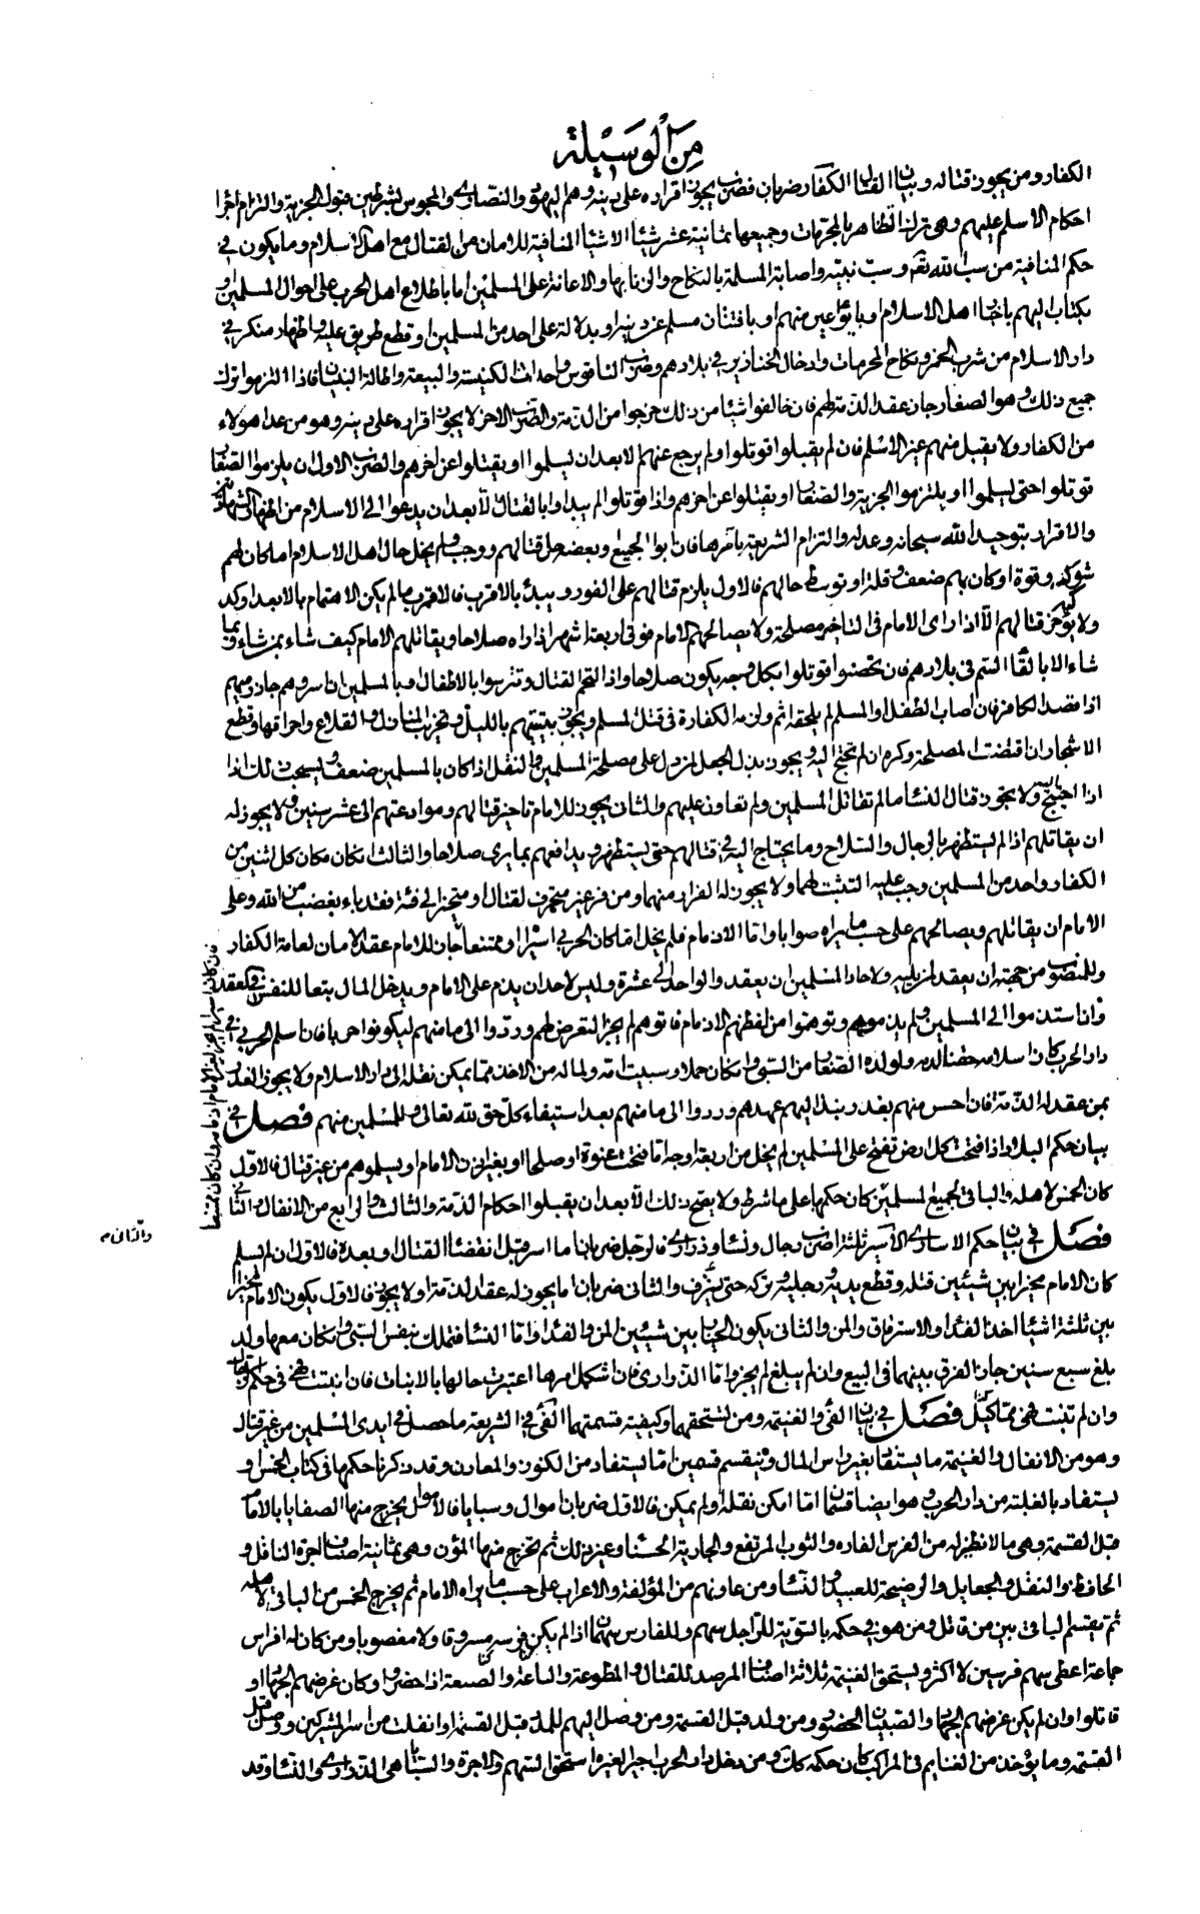 من الوسيلة
الكفار ومن يجوز قتاله وبيان القتال الكفار ضربان فضرب يجوز اقراره على دينه وهم اليهود والنصارى والمجوس بشرطين قبول الجزية والتزام اجراء
احكام الاسلم عليهم وهى ترك التظاهر بالمحرمات وجميعها ثمانية عشر شيئا الاشياء المنافية للامان من القتال مع اهل الاسلام وما يكون في
حكم المنافية من سب الله تعالى وسب نبيه واصابة المسلمة بالنكاح والزنا بها والاعانة على المسلمين اما باطلاع اهل الحرب على احوال المسلمين او
بكتاب اليهم باخبار اهل الاسلام او بايواء عين منهم او بافتتان مسلم عن دينه او بدلالة على احد من المسلمين او قطع طريق عليه واظهار منكر في
دار الاسلام من شرب الخمر ونكاح المحرمات وادخال الخنازير في بلادهم وضرب الناقوس واحداث الكنيسة والبيعة واطالة البنيان فاذا التزموا ترك
جميع ذلك وهو الصغار جاز عقد الذمة لهم فان خالفوا شيئا من ذلك خرجوا من الذمة والضرب الاخر لا يجوز اقراره على دينه وهو من عدا هولاء
من الكفار ولا يقبل منهم غير الاسلم فان لم يقبلوا قوتلوا ولم يرجع عنهم الا بعد ان يسلموا او يقتلوا عن اخرهم والضرب الاول ان يلزموا الصغار
قوتلوا حتى يسلموا او يلتزموا الجزية والصغار او يقتلوا عن اخرهم واذا قوتلوا لم يبداوا بالقتال الا بعد ان يدعوا الى الاسلام من اظهار الشهادتين
والاقرار بتوحيد الله سبحانه وعدله والتزام الشريعة باسرها فان ابوا الجميع او بعضه حل قتالهم ووجب ولم يخل حال اهل الاسلام اما كان لهم
شوكة وقوة او كان بهم ضعف وقلة او توسط حالهم فالاول يلزم قتالهم على الفور ويبدأ بالاقرب فالاقرب ما لم يكن الاهتمام بالابعد اوكد
ولا يؤخر قتالهم الا اذا راى الامام فى التاخير مصلحة ولا يصالحهم الامام فوق اربعة اشهر اذا راه صلاحا ويقاتلهم الامام كيف شاء بمن شاء وبما
شاء الا بالقاء السم فى بلادهم فان تحصنوا قوتلوا بكل وجه يكون صلاحا واذا التحم القتال وتترسوا بالاطفال او بالمسلمين ان اسروهم جاز رميهم
اذا قصد الكافر فان اصاب الطفل او المسلم لم يلحقه اثم ولزمه الكفارة فى قتل المسلم ويجوز تبييتهم بالليل وتخريب المنازل والقلاع واحراقها وقطع
الاشجار ان اقتضت المصلحة وكره ان لم يحتج اليه ويجوز بذل الجعل لمن دل على مصلحة المسلمين والنفل اذا كان بالمسلمين ضعف ويستحب ذلك اذا
اذا احتيج اليه ولا يجوز قتال النساء ما لم تقاتل المسلمين ولم تعاون عليهم والثانى يجوز للامام تاخير قتالهم وموادعتهم الى عشر سنين ولا يجوز له
ان يقاتلهم اذا لم يستظهر بالرجال والسلاح وما يحتاج اليه في قتالهم حتى يستظهر ويدافعهم بما يرى صلاحا والثالث ان كان مكان كل اثنين من
الكفار واحد من المسلمين وجب عليه التثبت لهما ولا يجوز له الفرار منهما ومن فر غير متحرف لقتال او متحيز الى فئة فقد باء بغضب من الله وعلى
الامام ان يقاتلهم ويصالحهم على حسب ما يراه صوابا واما الاذمام فلم يخل اما كان الحربي اسيرا او ممتنعا جاز للامام عقد الامان لعامة الكفار
وللمنصوب من جهته ان يعقد لمن يليه ولاحاد المسلمين ان يعقد والواحد الى عشرة وليس لاحد ان يذم على الامام ويدخل المال تبعا للنفس في العقد
وان استذموا الى المسلمين ولم يذموهم وتوهموا من لفظهم الاذمام فاتوهم لم يجز التعرض لهم وردوا الى مامنهم ليكونوا حربا فان اسلم الحربي في
دار الحرب كان اسلامه حقنا لدمه ولولده الصغار من السبى وان كان حملا وسبيت امه ولماله من الاخذ مما يمكن نقله الى دار الاسلام ولا يجوز الغدر
بمن عقد له الذمة فان احس منهم بغدر نبذ اليهم عهدهم وردوا الى مامنهم بعد استيفاء كل حق لله تعالى وللمسلمين منهم فصل في
بيان حكم البلاد اذا فتحت كل ارض تفتح على المسلمين لم يخل من اربعة اوجه اما فتحت عنوة او صلحا او بغير اذن الامام او يسلموهم من غير قتال فالاول
كان الخمس لاهله والباقى لجميع المسلمين كان حكمها على ما شرط ولا يصح ذلك الا بعد ان يقبلوا احكام الذمة والثالث والرابع من الانفال والثانى
فصل في بيان حكم الاسارى الاسير ثلثة اضرب رجال ونساء وذرارى فالرجل ضربان اما اسر قبل انقضاء القتال او بعده فالاول ان لم يسلم
كان الامام مخيرا بين شيئين قتله وقطع يديه ورجليه وتركه حتى ينزف والثانى ضربان اما يجوز له عقد الذمة او لا يجوز فالاول يكون الامام مخيرا
بين ثلثة اشياء اخذ الفداء والاسترقاق والمن والثانى يكون الخيار بين شيئين المن والفداء واما النساء فتملك بنفس السبى وان كان معها ولد
بلغ سبع سنين جاز الفرق بينهما فى البيع وان لم يبلغ لم يجز واما الذرارى فان اشكل امرها اعتبرت حالها بالانبات فان انبتت فهى فى حكم
وان لم تنبت فهى فصل في بيان الفئ والغنيمة ومن يستحقها وكيفية قسمتهما الفئ في الشريعة ما حصل في ايدى المسلمين من غير قتال
وهو من الانفال والغنيمة ما يستفاد بغير راس المال وينقسم قسمين اما يستفاد من الكنوز والمعادن وقد ذكرنا حكمها فى كتاب الخمس او
يستفاد بالغلبة من دار الحرب وهو ايضا قسمان اما امكن نقله او لم يمكن فالاول ضربان اموال وسبايا فالاموال يخرج منها الصفايا للامام
قبل القسمة وهى ما لا نظير له من الفرس الفاره والثوب المرتفع والجارية الحسناء وغير ذلك ثم تخرج منها المؤن وهى ثمانية اصناف اجرة الناقل و
الحافظ والنفل والجعايل والرضيحة للعبيد والنساء ومن عاونهم من المؤلفة والاعراب على حسب ما يراه الامام ثم يخرج الخمس من الباقى لاهله
ثم يقسم الباقى بين من قاتل ومن هو في حكمه بالسوية للراجل سهم وللفارس سهمان اذا لم يكن فرسه مسروقا ولا مغصوبا ومن كان له افراس
جماعة اعطى سهم فرسين لا اكثر ويستحق الغنيمة ثلاثة اصناف المرصد للقتال والمطوعة والباعة والصنعة اذا حضروا وكان غرضهم الجهاد او
قاتلوا وان لم يكن غرضهم الجهاد والصبيان الحضور ومن ولد قبل القسمة ومن وصل اليهم للمدد قبل القسمة او انفلت من اسر المشركين ووصل قبل
القسمة وما يؤخذ من الغنايم فى المراكب كان حكمه كذلك ومن دخل دار الحرب اجيرا لغيره استحق السهم والاجرة والسبايا هى الذرارى والنساء وقد
فان كان اسيرا لم يجز لغير الامام اذمامه وان كان ممتنعا
والثانى م